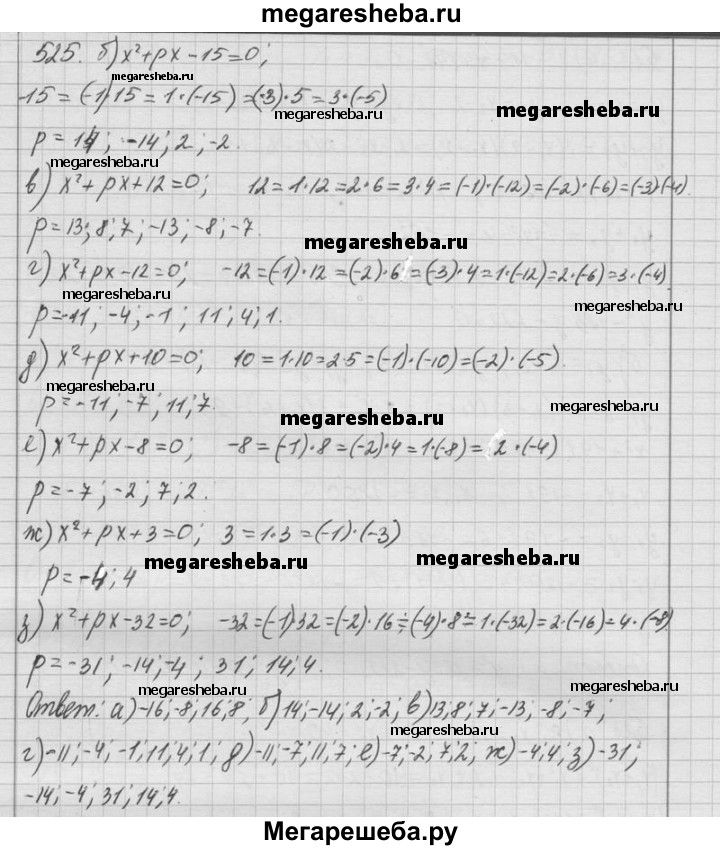 megaresheba.ru
525. б) x²+px-15=0;
megaresheba.ru
-15 = (-1)·15 = 1·(-15) = (-3)·5 = 3·(-5)
megaresheba.ru
megaresheba.ru
p = 14; -14; 2; -2.
megaresheba.ru
в) x²+px+12=0; 12=1·12=2·6=3·4=(-1)·(-12)=(-2)·(-6)=(-3)(-4).
megaresheba.ru
p=13; 8; 7; -13; -8; -7.
megaresheba.ru
г) x²+px-12=0; -12=(-1)·12=(-2)·6=(-3)·4=1·(-12)=2·(-6)=3·(-4)
megaresheba.ru
megaresheba.ru
p=-11; -4; -1; 11; 4; 1.
д) x²+px+10=0; 10=1·10=2·5=(-1)·(-10)=(-2)·(-5).
p=-11; -7; 11; 7.
megaresheba.ru
megaresheba.ru
е) x²+px-8=0; -8=(-1)·8=(-2)·4=1·(-8)=2·(-4)
p=-7; -2; 7; 2.
ж) x²+px+3=0; 3=1·3=(-1)·(-3)
megaresheba.ru
megaresheba.ru
p=-4; 4
з) x²+px-32=0; -32=(-1)32=(-2)·16=(-4)·8=1·(-32)=2·(-16)=4·(-8)
megaresheba.ru
p=-31; -14; -4; 31; 14; 4.
megaresheba.ru
Ответ: а)-16; -8; 16; 8; б)14; -14; 2; -2; в)13; 8; 7; -13; -8; -7;
megaresheba.ru
г)-11; -4; -1; 11; 4; 1; д)-11; -7; 11; 7; е)-7; -2; 7; 2; ж)-4; 4; з)-31;
-14; -4; 31; 14; 4.
Мегарешеба.ру